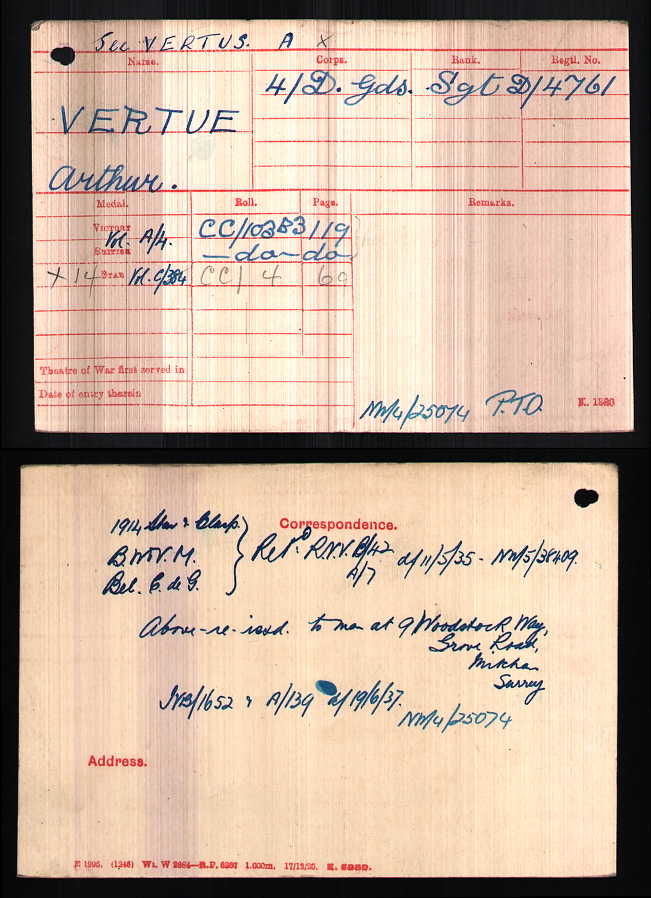 See VERTUS. A X
Name. Corps. Rank. Regtl. No.
4/D. Gds. Sgt D/4761
VERTUE
Arthur.
Medal. Roll. Page. Remarks.
Victory Vol. A/4. CC/103B3 119
British — do — do
X 14 Star Vol. C/384 CC/ 4 69
Theatre of War first served in
Date of entry therein
NW/4/25074 P.T.O. K. 1380
Correspondence.
1914 Star & Clasp.
B.W & V.M. Retd. R.V.V. B/42 d/11/5/35 - NW/5/38409.
A/7
Bel. C. de G.
Above re-issd. to man at 9 Woodstock Way,
Grove Road,
Surrey
1652 & A/139 d/19/6/37.
NW/4/25074
Address.
(1346) Wt. W 2864—R.P. 6267 1,000m. 17/12/25.